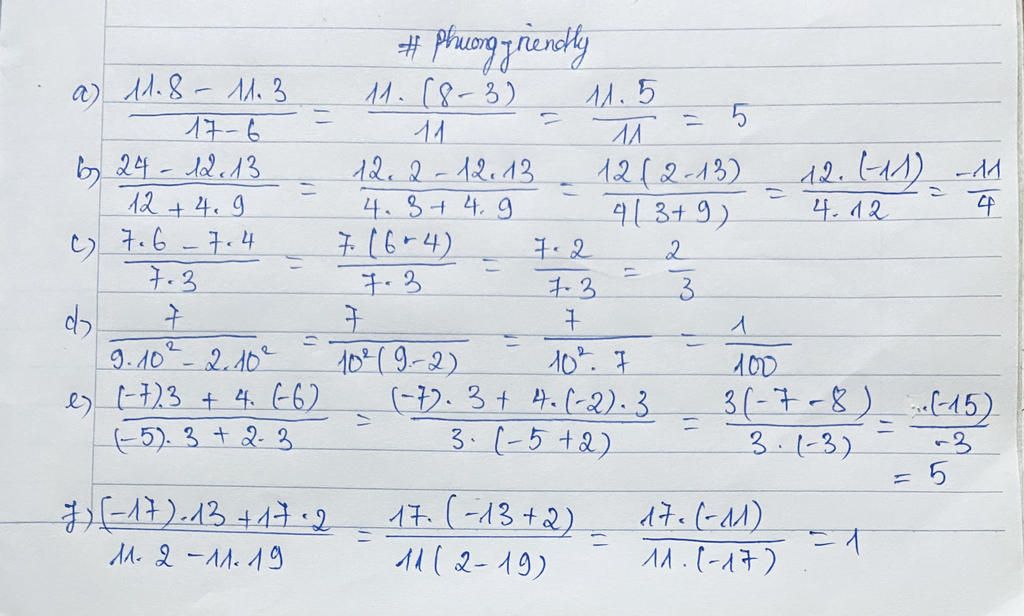 # Phuongfriendly
a) (11.8 - 11.3)/(17-6) = (11.(8-3))/11 = (11.5)/11 = 5
b) (24 - 12.13)/(12 + 4.9) = (12.2 - 12.13)/(4.3 + 4.9) = (12(2-13))/(4(3+9)) = (12.(-11))/(4.12) = -11/4
c) (7.6 - 7.4)/(7.3) = (7.(6-4))/(7.3) = (7.2)/(7.3) = 2/3
d) 7/(9.10² - 2.10²) = 7/(10²(9-2)) = 7/(10².7) = 1/100
e) ((-7).3 + 4.(-6))/((-5).3 + 2.3) = ((-7).3 + 4.(-2).3)/(3.(-5+2)) = (3(-7-8))/(3.(-3)) = (-15)/-3
= 5
f) ((-17).13 + 17.2)/(11.2 - 11.19) = (17.(-13+2))/(11(2-19)) = (17.(-11))/(11.(-17)) = 1